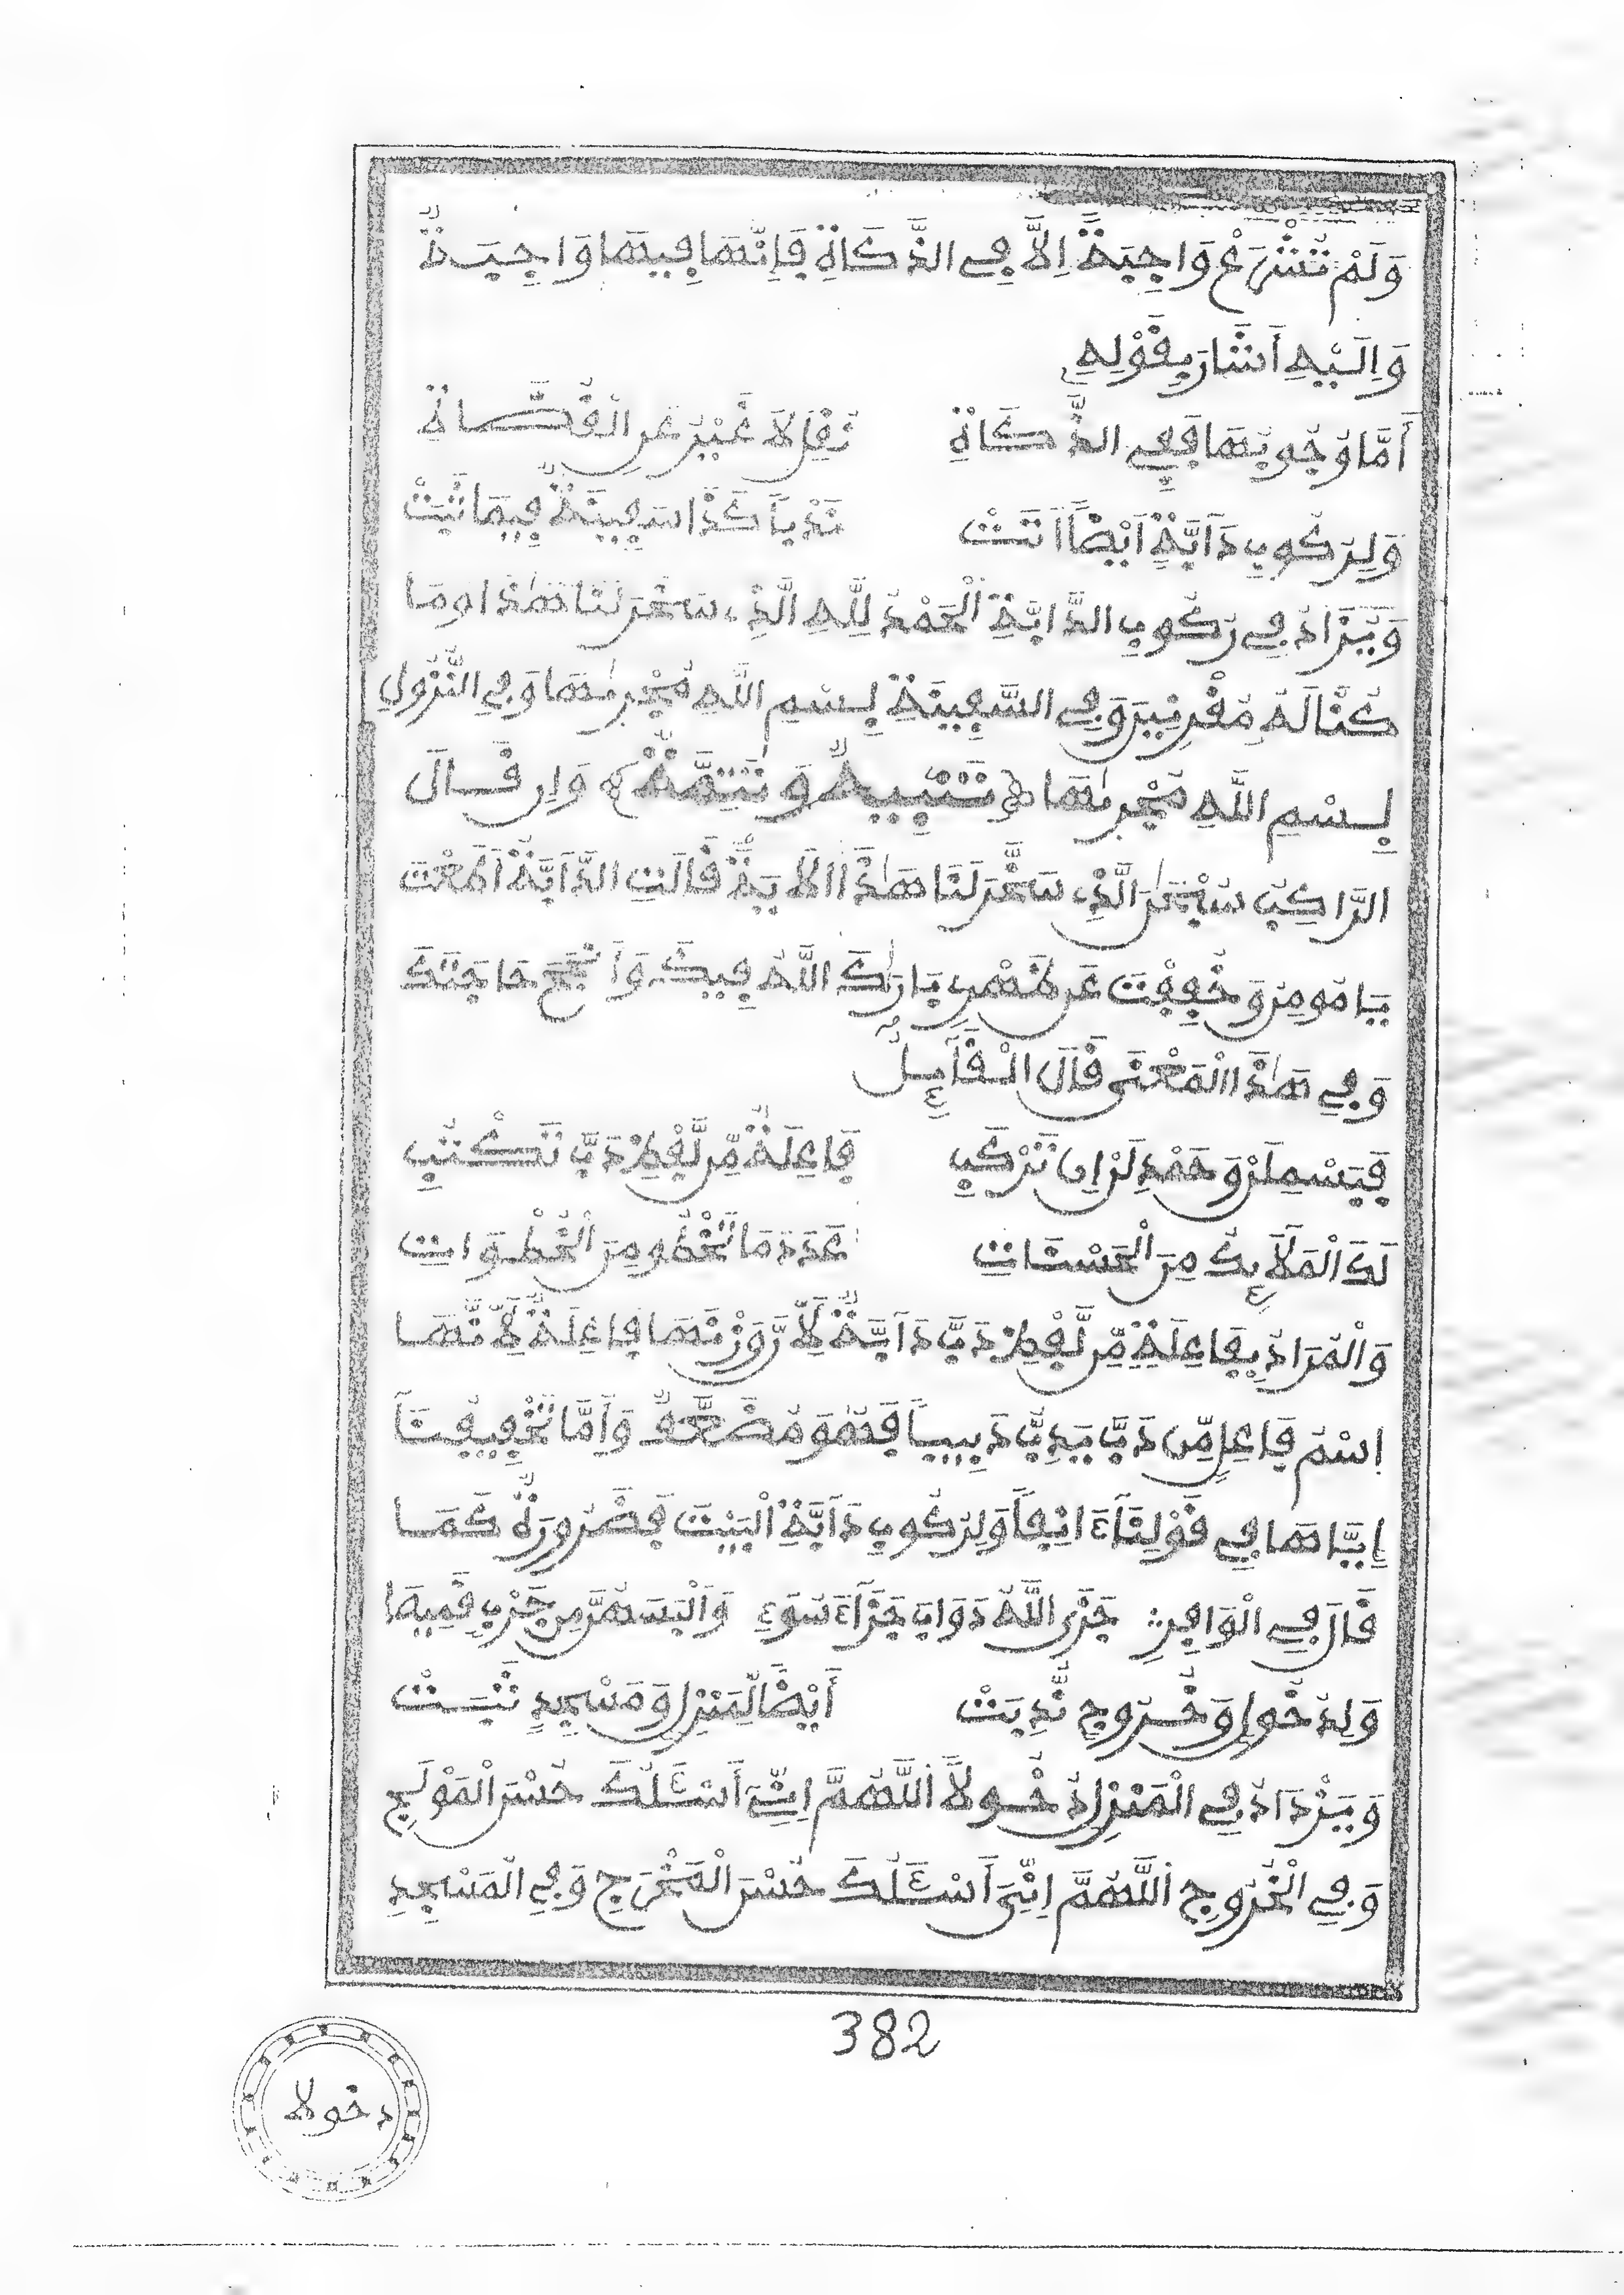 وَلَمْ تُشْرَعْ وَاجِبَةً اِلاَّ فِي الذَّكَاةِ فَإِنَّهَا فِيهَا وَاجِبَةٌ
وَاِلَيْهِ أَشَارَ بِقَوْلِهِ
أَمَّا وُجُوبُهَا فَفِي الذَّكَاةِ نُقِلَ لاَ غَيْرُ عَنِ الثِّقَاةِ
وَلِرُكُوبِ دَآبَّةٍ اَيْضًا اَتَتْ نَدْباً كَذَا سَفِينَةٌ فِيمَا ثَبَتْ
وَيُزَادُ فِي رُكُوبِ الدَّابَّةِ اَلْحَمْدُ لِلَّهِ الَّذِي سَخَّرَ لَنَا هَٰذَا وَمَا
كُنَّا لَهُ مُقْرِنِينَ وَفِي السَّفِينَةِ بِسْمِ اللَّهِ مُجْرٰىهَا وَفِي النُّزُولِ
بِسْمِ اللَّهِ مُجْرٰىهَا تَنْبِيهٌ وَتَتِمَّةٌ وَاِن قَالَ
الرَّاكِبُ سُبْحَٰنَ الَّذِي سَخَّرَ لَنَا هَٰذَا اَلاَيَةَ قَالَتِ الدَّآبَّةُ اَطَعْتَ
يَا مُومِنُ وَخَفَّفْتَ عَن ظَهْرِي بَارَكَ اللَّهُ فِيكَ وَأَنْجَحَ حَاجَتَكَ
وَفِي هَٰذَا الْمَعْنَى قَالَ الْقَآئِلُ
فَبَسْمِلَنْ وَحَمْدِلَنْ اِن تَرْكَبِ فَاعِلَةٌ مِّن لَّفْظِ دَبَّ تَكْتُبِ
لَكَ الْمَلَآئِكُ مِنَ الْحَسَنَاتِ عَدَدَ مَا تَخْطُو مِنَ الْخُطْوَاتِ
وَالْمُرَادُ بِفَاعِلَةٍ مِّن لَّفْظِ دَبَّ دَآبَّةٌ لِأَنَّ وَزْنَهَا فَاعِلَةٌ لِأَنَّهَا
اِسْمُ فَاعِلٍ مِّن دَبَّ يَدِبُّ دَبِيباً فَهُوَ مُضَعَّفٌ وَاَمَّا تَخْفِيفُنَا
اِيَّاهَا فِي قَوْلِنَا ءَانِفاً وَلِرُكُوبِ دَآبَّةٍ الْبَيْتَ فَضَرُورَةٌ كَمَا
قَالَ فِي الْوَافِرِ جَزَى اللَّهُ دَوَابَ جَزَآءَ سَوْءٍ وَاَلْبَسَهُنَّ مِن جَرَبٍ قَمِيصَا
وَلِدُخُولٍ وَخُرُوجٍ نُّدِبَتْ أَيْضًا لِمَنْزِلٍ وَمَسْجِدٍ ثَبَتْ
وَيَزْدَادُ فِي الْمَنْزِلِ دُخُولاً اَللَّهُمَّ اِنِّي أَسْـَٔلُكَ حُسْنَ الْمَوْلَجِ
وَفِي الْخُرُوجِ اَللَّهُمَّ اِنِّي أَسْـَٔلُكَ حُسْنَ الْمَخْرَجِ وَفِي الْمَسْجِدِ
382
دخولا